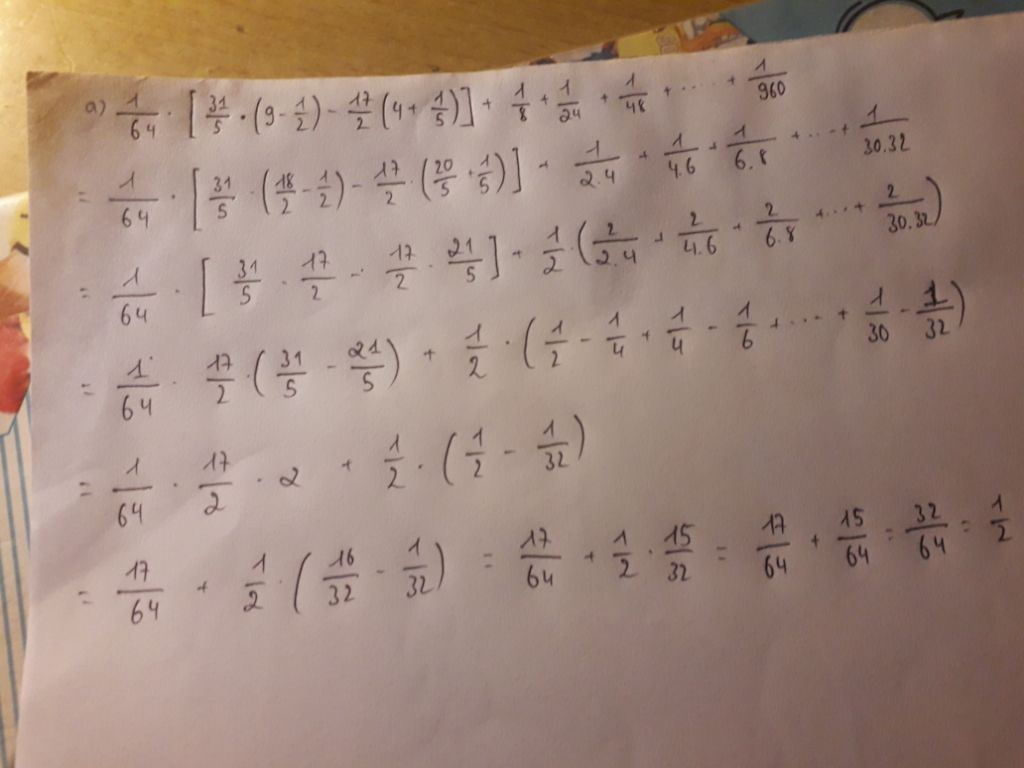 a) 1/64 · [31/5 · (9 - 1/2) - 17/2 (4 + 1/5)] + 1/8 + 1/24 + 1/48 + ..... + 1/960
= 1/64 · [31/5 · (18/2 - 1/2) - 17/2 · (20/5 + 1/5)] + 1/2.4 + 1/4.6 + 1/6.8 + ... + 1/30.32
= 1/64 · [31/5 · 17/2 - 17/2 · 21/5] + 1/2 · (2/2.4 + 2/4.6 + 2/6.8 + ... + 2/30.32)
= 1/64 · 17/2 · (31/5 - 21/5) + 1/2 · (1/2 - 1/4 + 1/4 - 1/6 + ... + 1/30 - 1/32)
= 1/64 · 17/2 · 2 + 1/2 · (1/2 - 1/32)
= 17/64 + 1/2 · (16/32 - 1/32) = 17/64 + 1/2 · 15/32 = 17/64 + 15/64 = 32/64 = 1/2